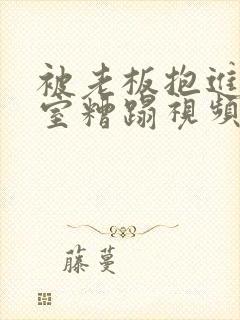 被老板抱进
室糟蹋视频
藤蔓